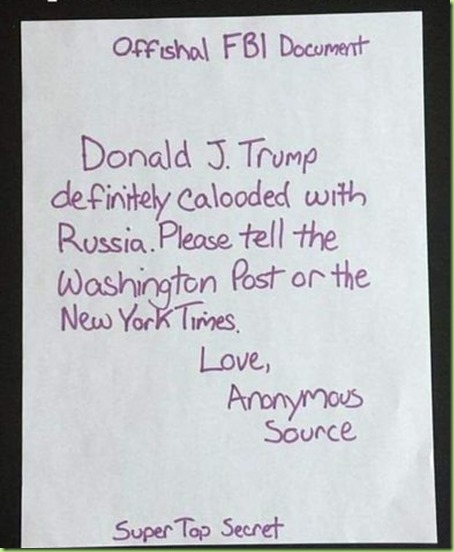 Offishal FBI Document
Donald J. Trump
definitely calooded with
Russia. Please tell the
Washington Post or the
New York Times.
Love,
Anonymous
Source
Super Top Secret